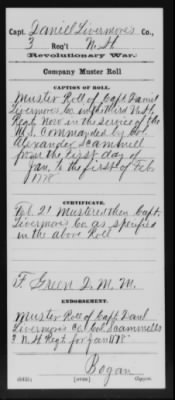 Capt. Daniel Livermore's Co.,
3 Reg't N. H.
(Revolutionary War.)
Company Muster Roll
CAPTION OF ROLL.
Muster Roll of Capt. Daniel
Livermore's Co. in third N.H.
Regt. now in the service of the
U.S. Commanded by Col.
Alexander Scammell
from the first day of
Jan. to the first of Feb.
1778
CERTIFICATE.
Feb. 21 Mustered then Capt.
Livermore's Co. as specified
in the above Roll
F. Green D. M. M.
ENDORSEMENT.
Muster Roll of Capt. Danl
Livermore's Co. Col. Scammells
3 N.H. Regt. for Jan 1778
Bogan
Copyist.